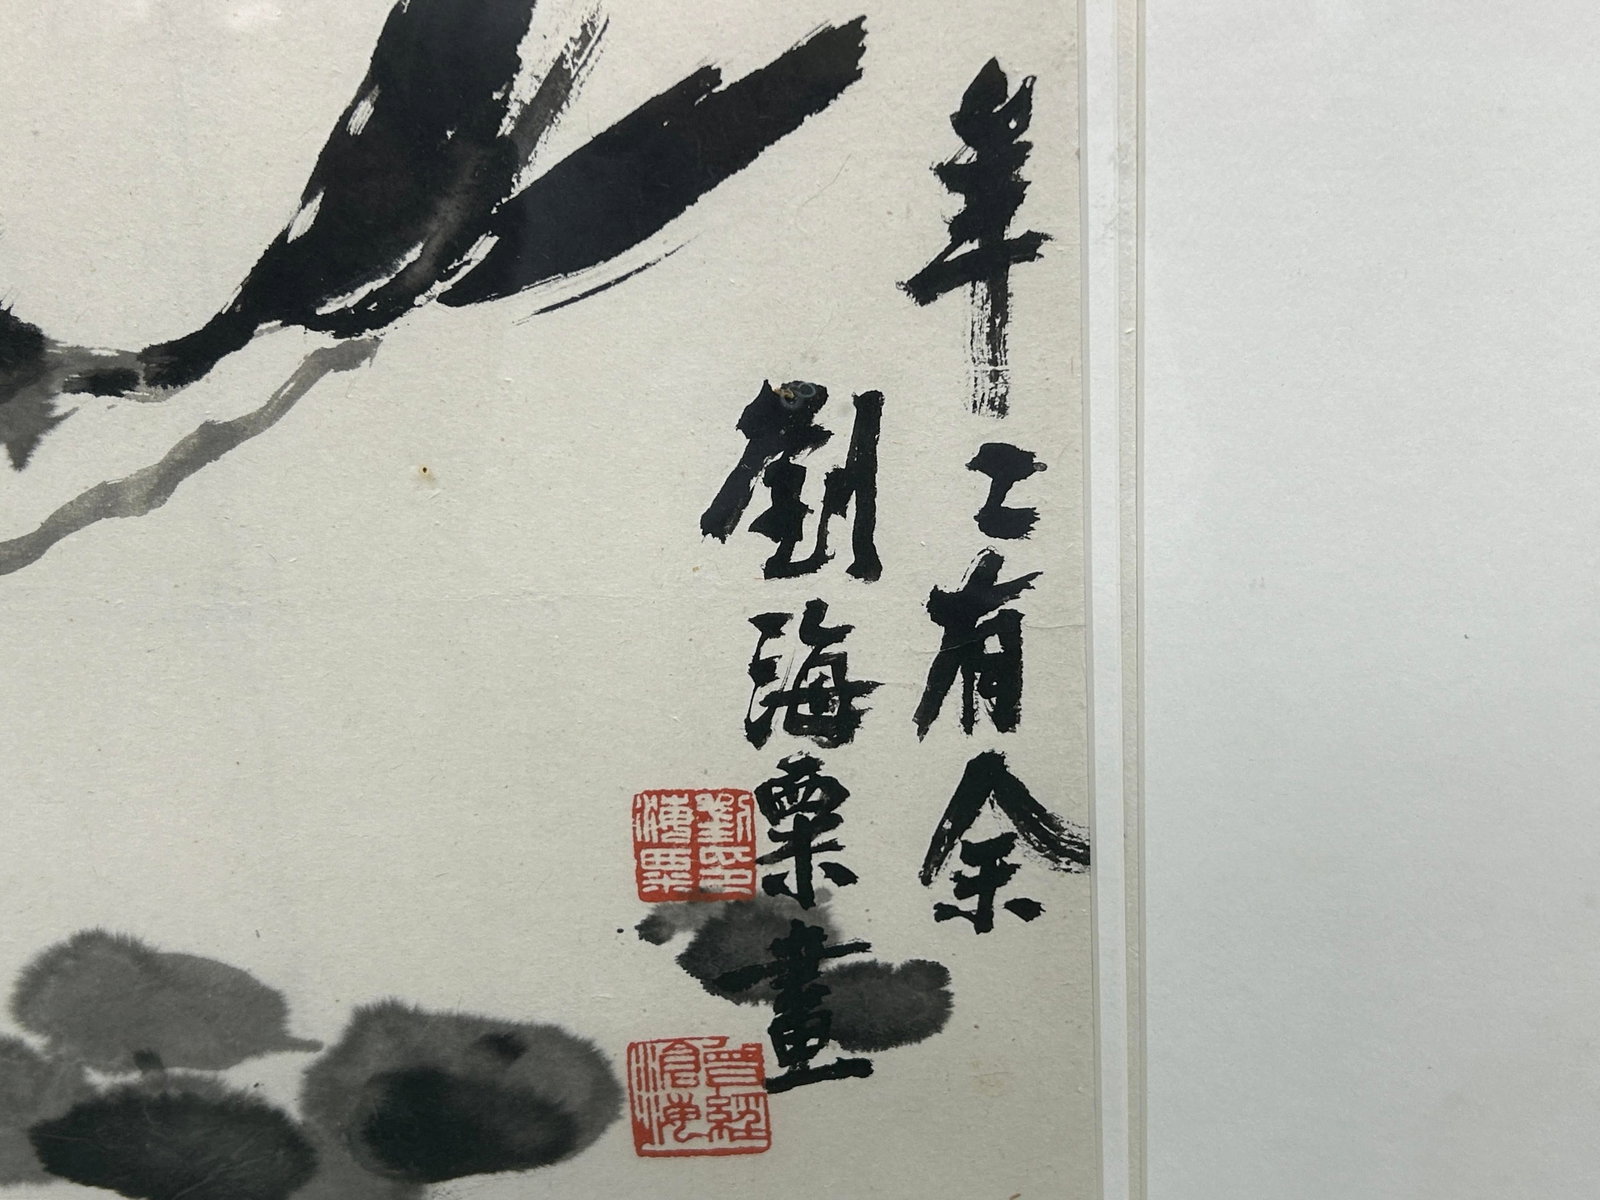 年々有余
劉海粟畫
劉海粟印
曾經滄海